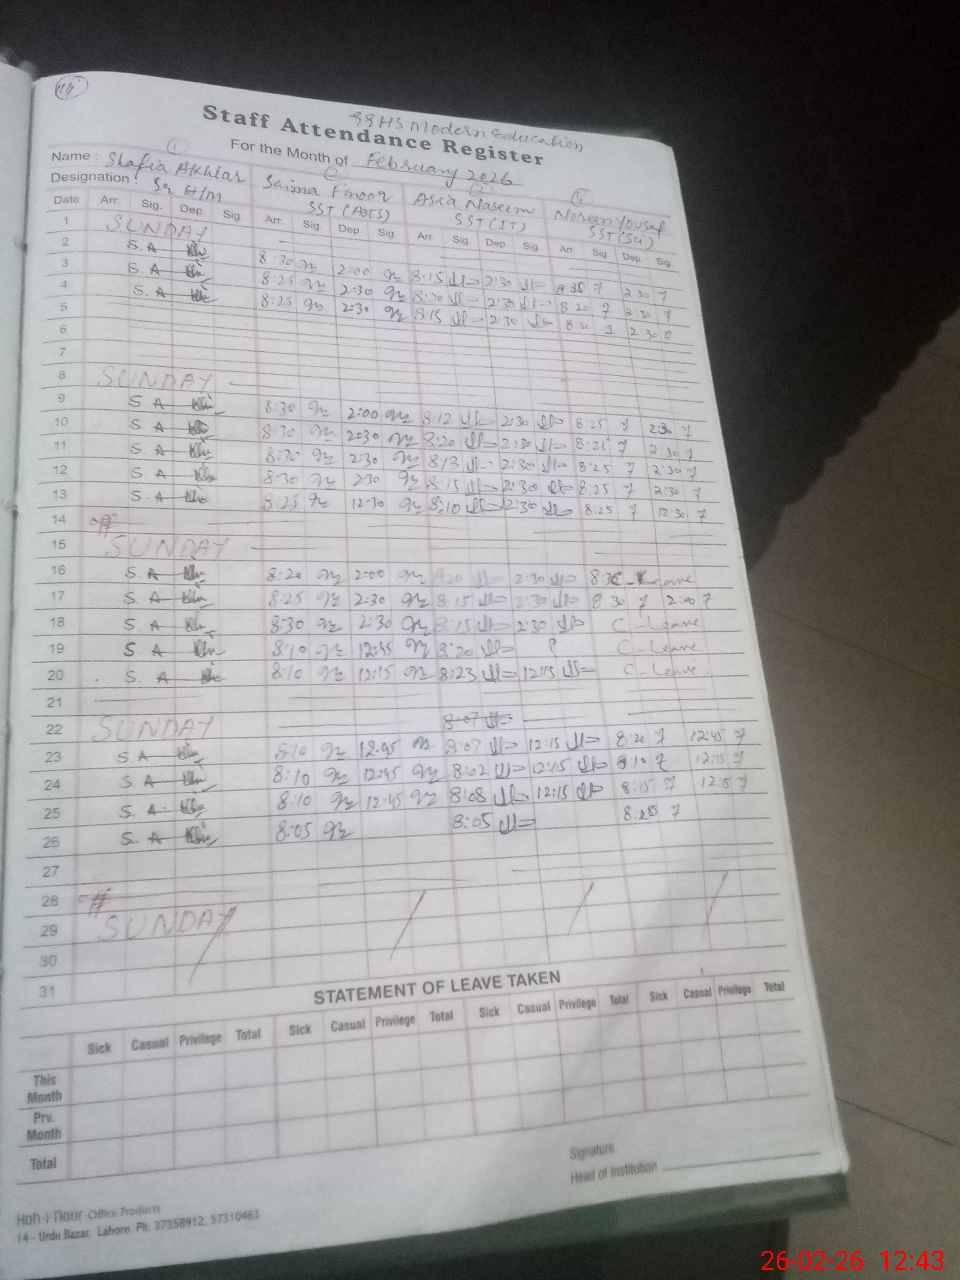 GGHS Modern Education
Staff Attendance Register
For the Month of February 2026
Name : Shafia Akhtar Saima Asia Naseem Noreen Yousaf
Designation : Sr H/M SST (Arts) SST (IT) SST (Sci)
Date Arr. Sig. Dep. Sig. Arr. Sig. Dep. Sig. Arr. Sig. Dep. Sig. Arr. Sig. Dep. Sig.
1 SUNDAY
2 S. A 8:30 2:00 8:15 2:30 2:30
3 S. A 8:25 2:30 8:20 2:30 8:20 2:30
4 S. A 8:25 2:30 8:15 2:30 8:20 2:30
5
6
7
8 SUNDAY
9 S A 8:30 2:00 8:12 2:30 8:25 2:30
10 S A 8:30 2:30 8:20 2:30 8:25 2:30
11 S A 2:30 8:13 2:30 8:25 2:30
12 S A 8:30 2:30 8:15 2:30 8:25 2:30
13 S. A 8:25 12:30 8:10 2:30 8:25 12:30
14
15 SUNDAY
16 S. A 8:20 2:00 2:30 Leave
17 S. A 8:25 2:30 8:15 2:30 8:30
18 S. A 8:30 2:30 8:15 2:30 C-Leave
19 S. A 8:10 12:45 8:20 ? C-Leave
20 S. A 8:10 12:15 8:23 12:15 C-Leave
21
22 SUNDAY 8:07
23 S A 8:10 12:45 8:07 12:15 8:20 12:45
24 S A 8:10 12:45 8:02 12:15 8:10 12:15
25 S. A. 8:10 12:45 8:08 12:15 8:15 12:15
26 S. A 8:05 8:05 8:20
27
28
29 SUNDAY
30
31
STATEMENT OF LEAVE TAKEN
Sick Casual Privilege Total Sick Casual Privilege Total Sick Casual Privilege Total Sick Casual Privilege Total
This Month
Prv. Month
Total
Signature
Head of Institution
Koh-i-Noor Office Products
14 - Urdu Bazar, Lahore Ph: 37358912, 37310463
26-02-26 12:43